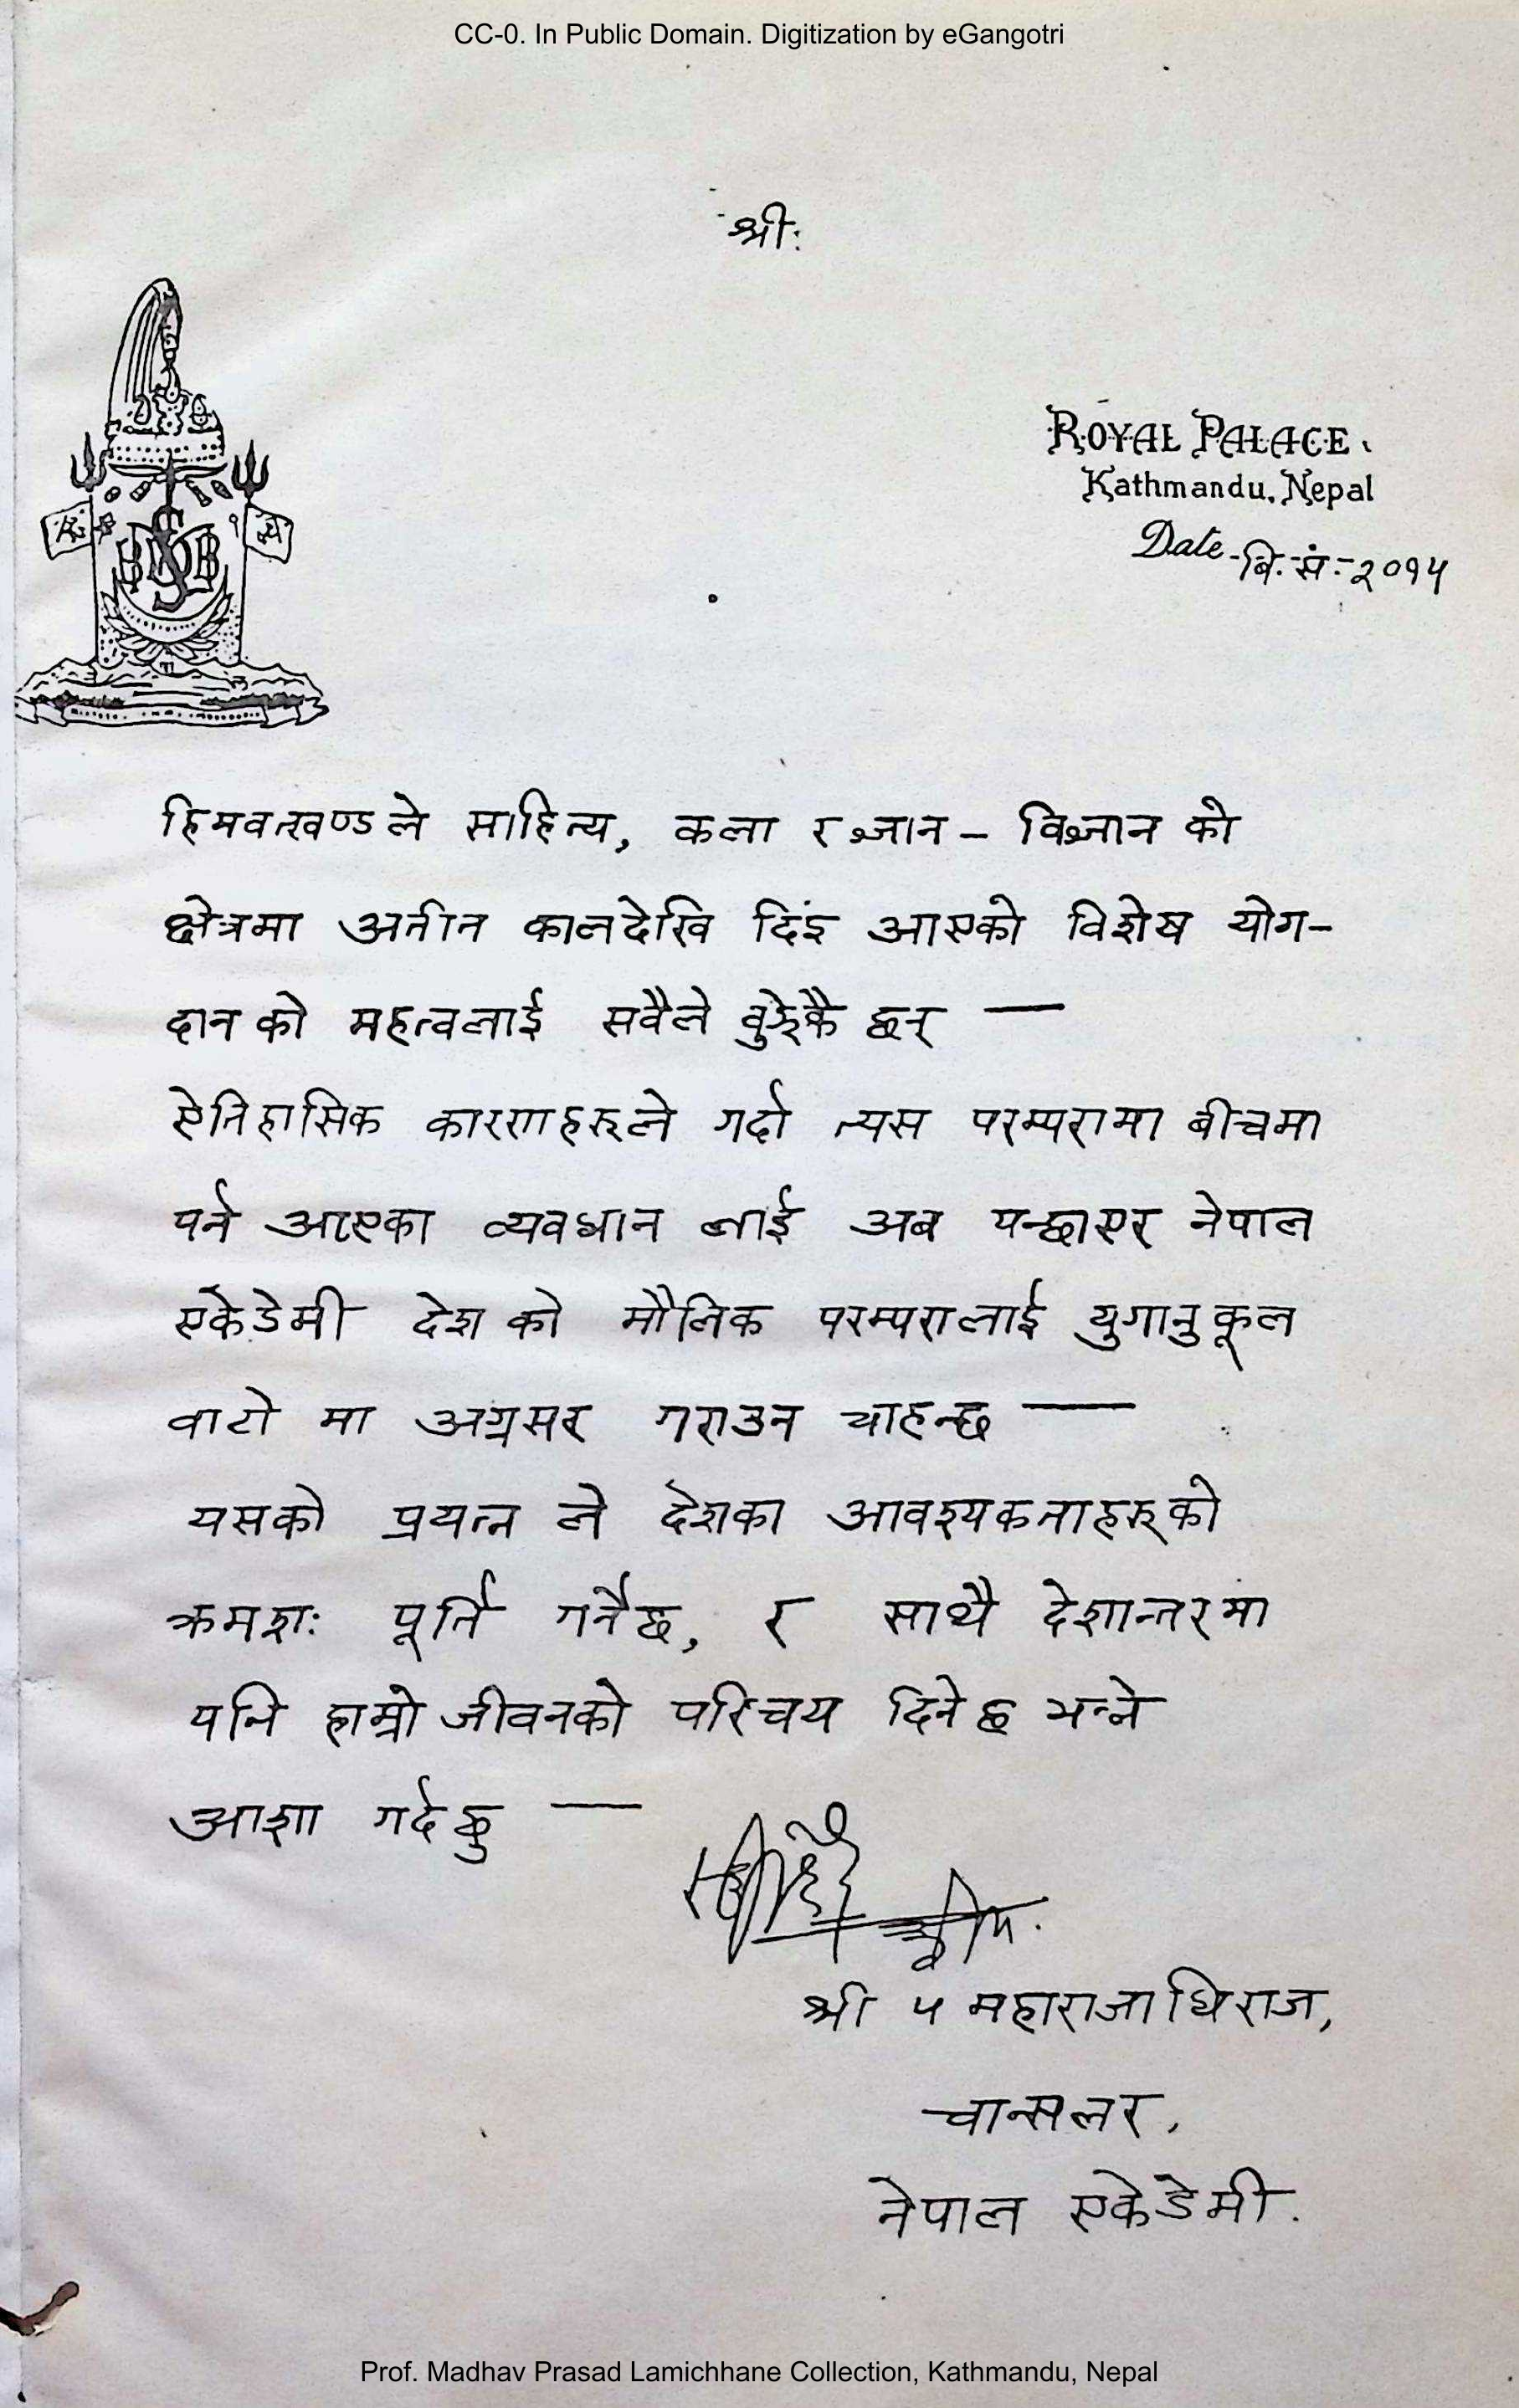 CC-0. In Public Domain. Digitization by eGangotri
श्री:
ROYAL PALACE.
Kathmandu, Nepal
Date - वि. सं:- २०१५
हिमवत्खण्ड ले साहित्य, कला र ज्ञान - विज्ञान को
क्षेत्रमा अतीत कालदेखि दिंइ आएको विशेष योग-
दान को महत्वलाई सवैले वुझेकै छन् —
ऐतिहासिक कारणहरूले गर्दा त्यस परम्परामा बीचमा
पर्न आएका व्यवधान लाई अब पन्छाएर नेपाल
एकेडेमी देश को मौलिक परम्परालाई युगानुकूल
वाटो मा अग्रसर गराउन चाहन्छ —
यसको प्रयत्न ले देशका आवश्यकताहरूको
क्रमश: पूर्ति गर्नेछ, र साथै देशान्तरमा
पनि हाम्रो जीवनको परिचय दिनेछ भन्ने
आशा गर्दछु —
श्री ५ महाराजाधिराज,
चान्सलर,
नेपाल एकेडेमी.
Prof. Madhav Prasad Lamichhane Collection, Kathmandu, Nepal